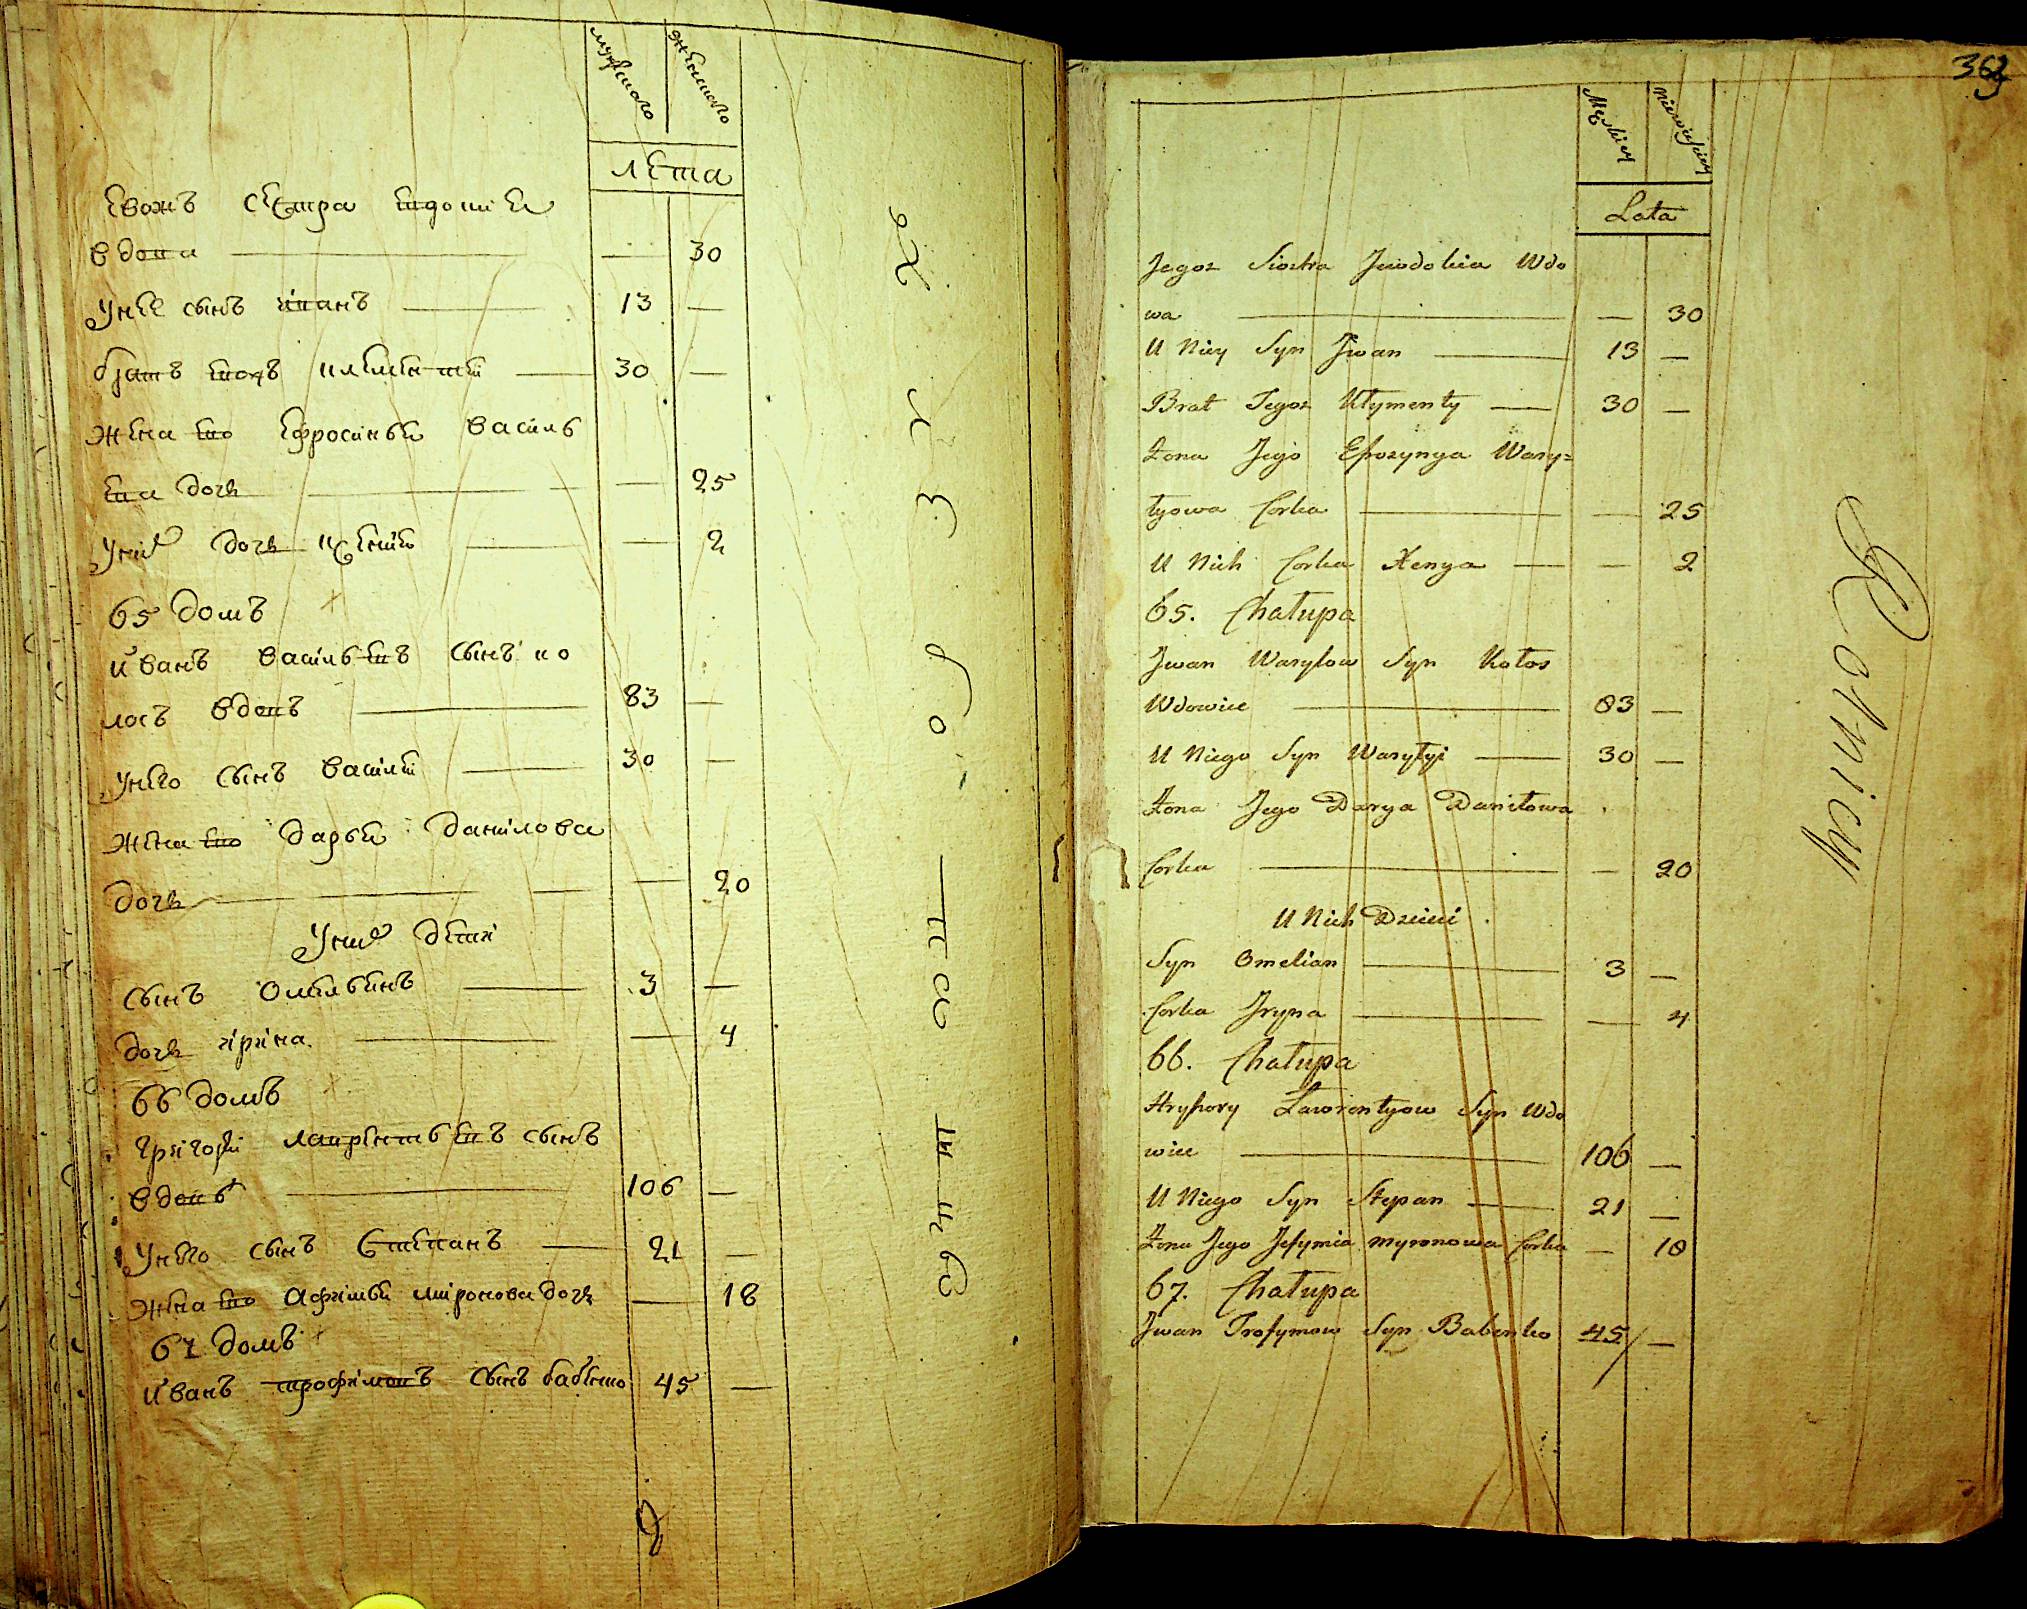 мужеска женска
лета
Евожъ сестра евдокиѣ
вдова — — 30
унее сынъ иванъ — 13 —
братъ евожъ климентей — 30 —
жена его ефросинья василь
ева дочь — — 25
уних дочь ксения — — 2
65 домъ
иванъ васильевъ сынъ ко
лосъ вдовъ — 83 —
унего сынъ василей — 30 —
жена его дарья данилова
дочь — — 20
уних дети
сынъ омельянъ — 3 —
дочь ирина — — 4
66 домъ
григорей лаврентьевъ сынъ
вдовъ — 106 —
унего сынъ степанъ — 21 —
жена его афимья миронова дочь — — 18
67 домъ
иванъ трофимовъ сынъ бабенко 45 —
363
Męskiey Niewieskiey
Lata
Jegoz Siostra Jewdokia Wdo
wa — — 30
U Niey Syn Jwan — 13 —
Brat Jegoz Kłymenty — 30 —
Żona Jego Efrozynya Wasy=
lyowa Corka — — 25
U Nich Corka Xenya — — 2
65. Chałupa
Jwan Wasylow Syn Kołos
Wdowiec — 83 —
U Niego Syn Wasylyi — 30 —
Żona Jego Darya Daniłowa
Corka — — 20
U Nich Dzieci
Syn Omelian — 3 —
Corka Jryna — — 4
66. Chałupa
Hryhory Ławrentyow Syn Wdo
wiec — 106 —
U Niego Syn Stepan — 21 —
Żona Jego Jefymia Myronowa Corka — 18
67. Chałupa
Jwan Trofymow Syn Babenko 45 —
Rolnicy